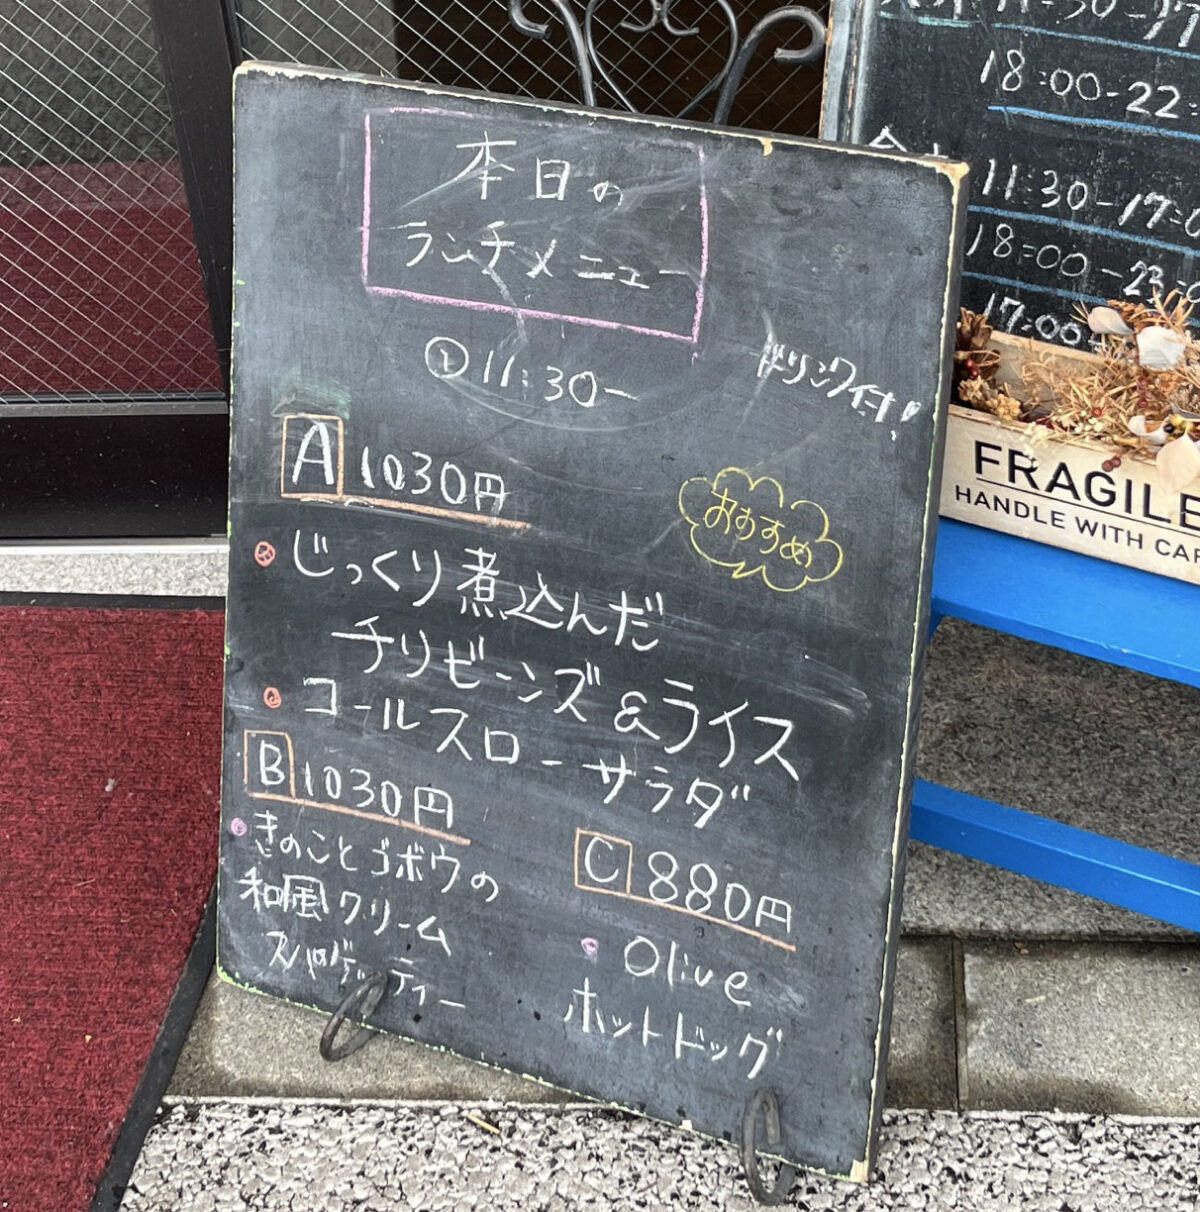 本日の
ランチメニュー
11:30-
ドリンク付!
A 1030円
おすすめ
じっくり煮込んだ
チリビーンズ&ライス
コールスローサラダ
B 1030円
きのことゴボウの
和風クリーム
スパゲッティー
C 880円
Olive
ホットドッグ
18:00-22:
11:30-17:0
18:00-23:
17:00-
FRAGILE
HANDLE WITH CAR